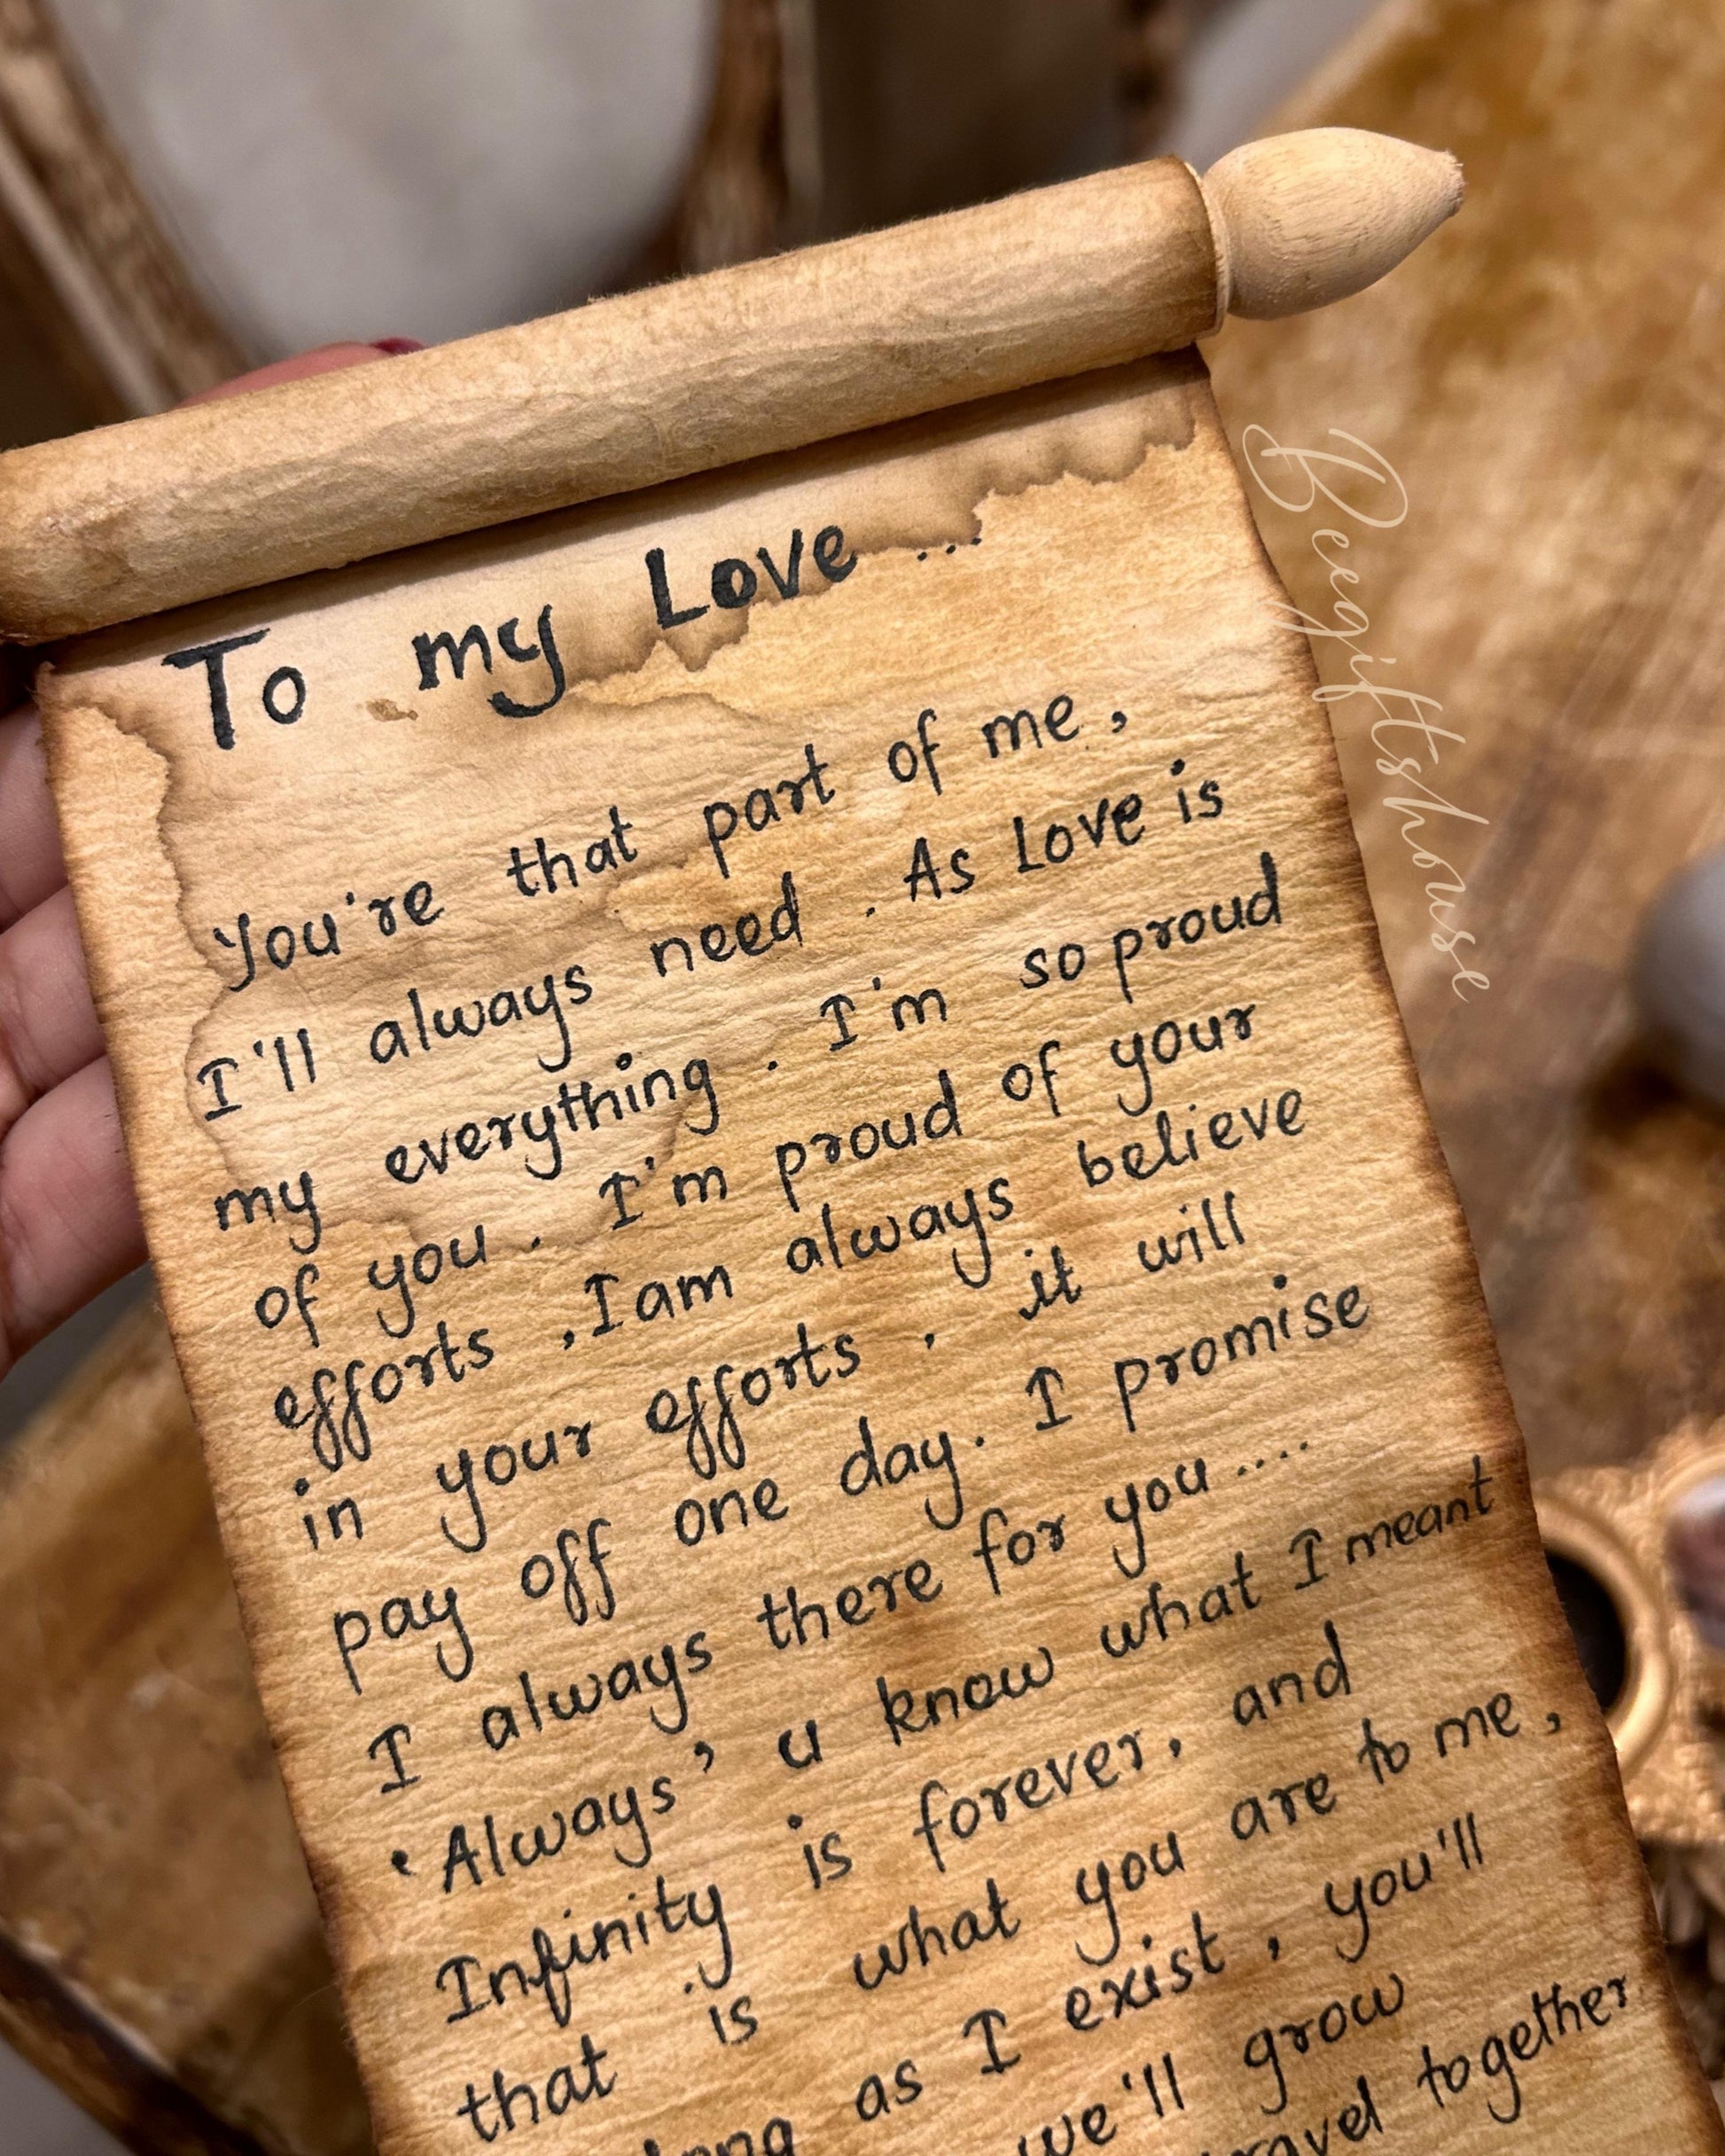 To my Love ...
You're that part of me,
I'll always need . As Love is
my everything . I'm so proud
of you . I'm proud of your
efforts , I am always believe
in your efforts , it will
pay off one day. I promise
I always there for you ....
'Always' u know what I meant
Infinity is forever, and
that is what you are to me,
as I exist , you'll
we'll grow
together
Beegiftshouse